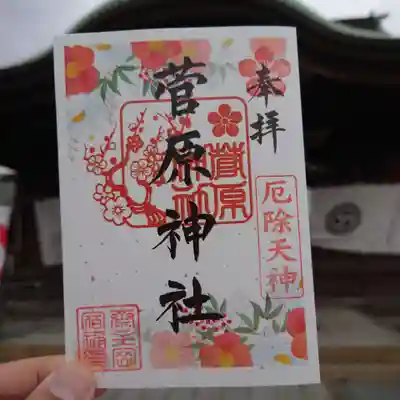 奉拝
菅原神社
菅原
厄除天神